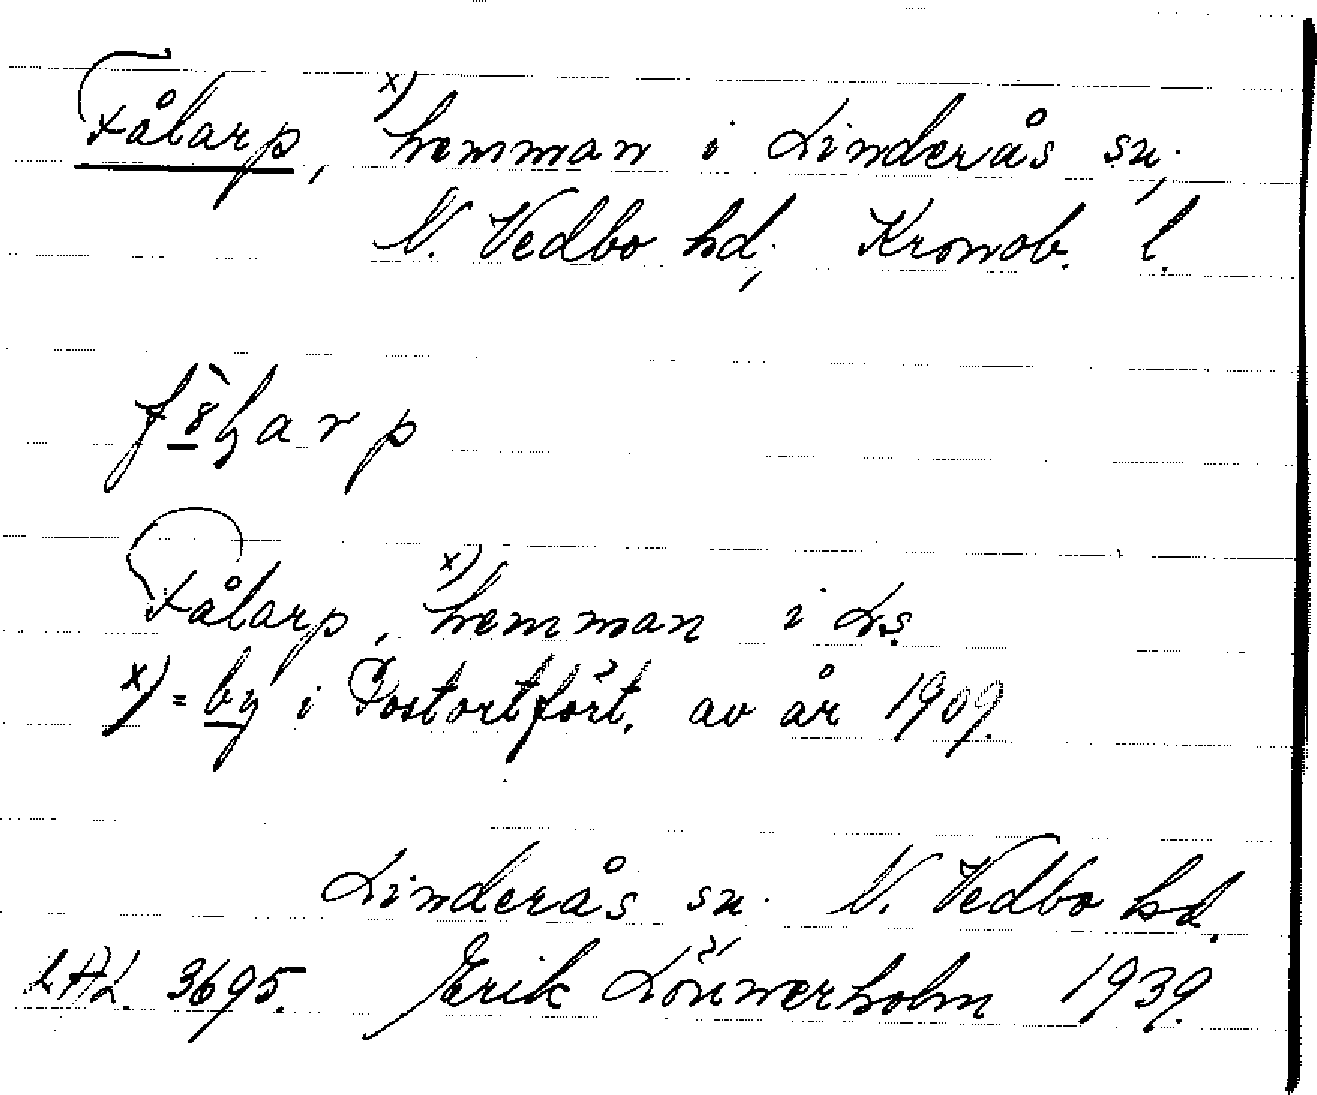 Fålarp, x) hemman i Linderås sn.,
N. Vedbo hd., Kronob. l.
Fålarp, x) hemman i Ls.
x) = by i Postortfört. av år 1909.
Linderås sn. N. Vedbo hd.
LAL 3695. Erik Lönnerholm 1939.